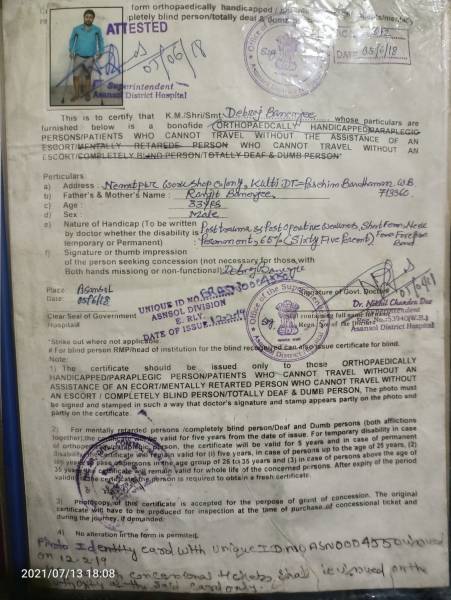 form orthopaedically handicapped /
pletely blind person/totally deaf & dumb
ATTESTED
05/06/18
DATE 05/6/18
Superintendent
Asansol District Hospital
This is to certify that K.M./Shri/Smt Debroj Banerjee whose particulars are
furnished below is a bonofide ORTHOPAEDCALLY HANDICAPPED/PARAPLEGIC
PERSONS/PATIENTS WHO CANNOT TRAVEL WITHOUT THE ASSISTANCE OF AN
ESCORT/MENTALLY RETAREDE PERSON WHO CANNOT TRAVEL WITHOUT AN
ESCORT/COMPLETELY BLIND PERSON/TOTALLY DEAF & DUMB PERSON*
Perticulars
a) Address : Neamatpur Workshop Colony, Kulti DT- Paschim Bardhaman W.B.
713360
b) Father's & Mother's Name : Ranjit Banerjee.
c) Age : 33 yrs
d) Sex : Male
e) Nature of Handicap (To be written
by doctor whether the disability is
temporary or Permanent) : Permanent, 65% (Sixty Five Percent)
f) Signature or thumb impression
of the person seeking concession (not necessary for those with
Both hands missing or non-functional) Debroj Banerjee
Place Asansol
Date 05/6/18
UNIQUE ID NO.
ASNSOL DIVISION
E. RLY.
DATE OF ISSUE 12-2-19
Office of the Superintendent
Signature of Govt. Doctor
Dr. Nikhil Chandra Das
Superintendent
Asansol District Hospital
Clear Seal of Government
Hospital#
*Strike out where not applicable.
# For blind person RMP/head of institution for the blind recognized can also issue certificate for blind.
Note:
1) The certificate should be issued only to those ORTHOPAEDICALLY
HANDICAPPED/PARAPLEGIC PERSON/PATIENTS WHO CANNOT TRAVEL WITHOUT AN
ASSISTANCE OF AN ECORT/MENTALLY RETARTED PERSON WHO CANNOT TRAVEL WITHOUT
AN ESCORT / COMPLETELY BLIND PERSON/TOTALLY DEAF & DUME PERSON, The photo must
be signed and stamped in such a way that doctor's signature and stamp appears partly on the photo and
partly on the certificate.
2) For mentally retarted persons /completely blind person/Deaf and Dumb persons (both afflictions
together) the certificate will be valid for five years from the date of issue. For temporary disability in case
of orthopaedically person, the certificate will be valid for 5 years and in case of permanent
disability certificate will valid for (i) five years, in case of persons up to the age of 25 years, (2)
ten years in case of persons in the age group of 26 to 35 years and (3) in case of persons above the age of
35 years, the certificate will remain valid for whole life of the concerned persons. After expiry of the period
validity of the certificate the person is required to obtain a fresh certificate.
3) Photocopy of this certificate is accepted for the purpose of grant of concession. The original
certificate will have to be produced for inspection at the time of purchase of concessional ticket and
during the journey, if demanded:
4) No alteration in the form is permitted.
Photo Identity card with Unique ID NO ASN0004550 issued
on 12-2-19
concessional tickets shall is issued on the
of the said card only.
2021/07/13 18:08